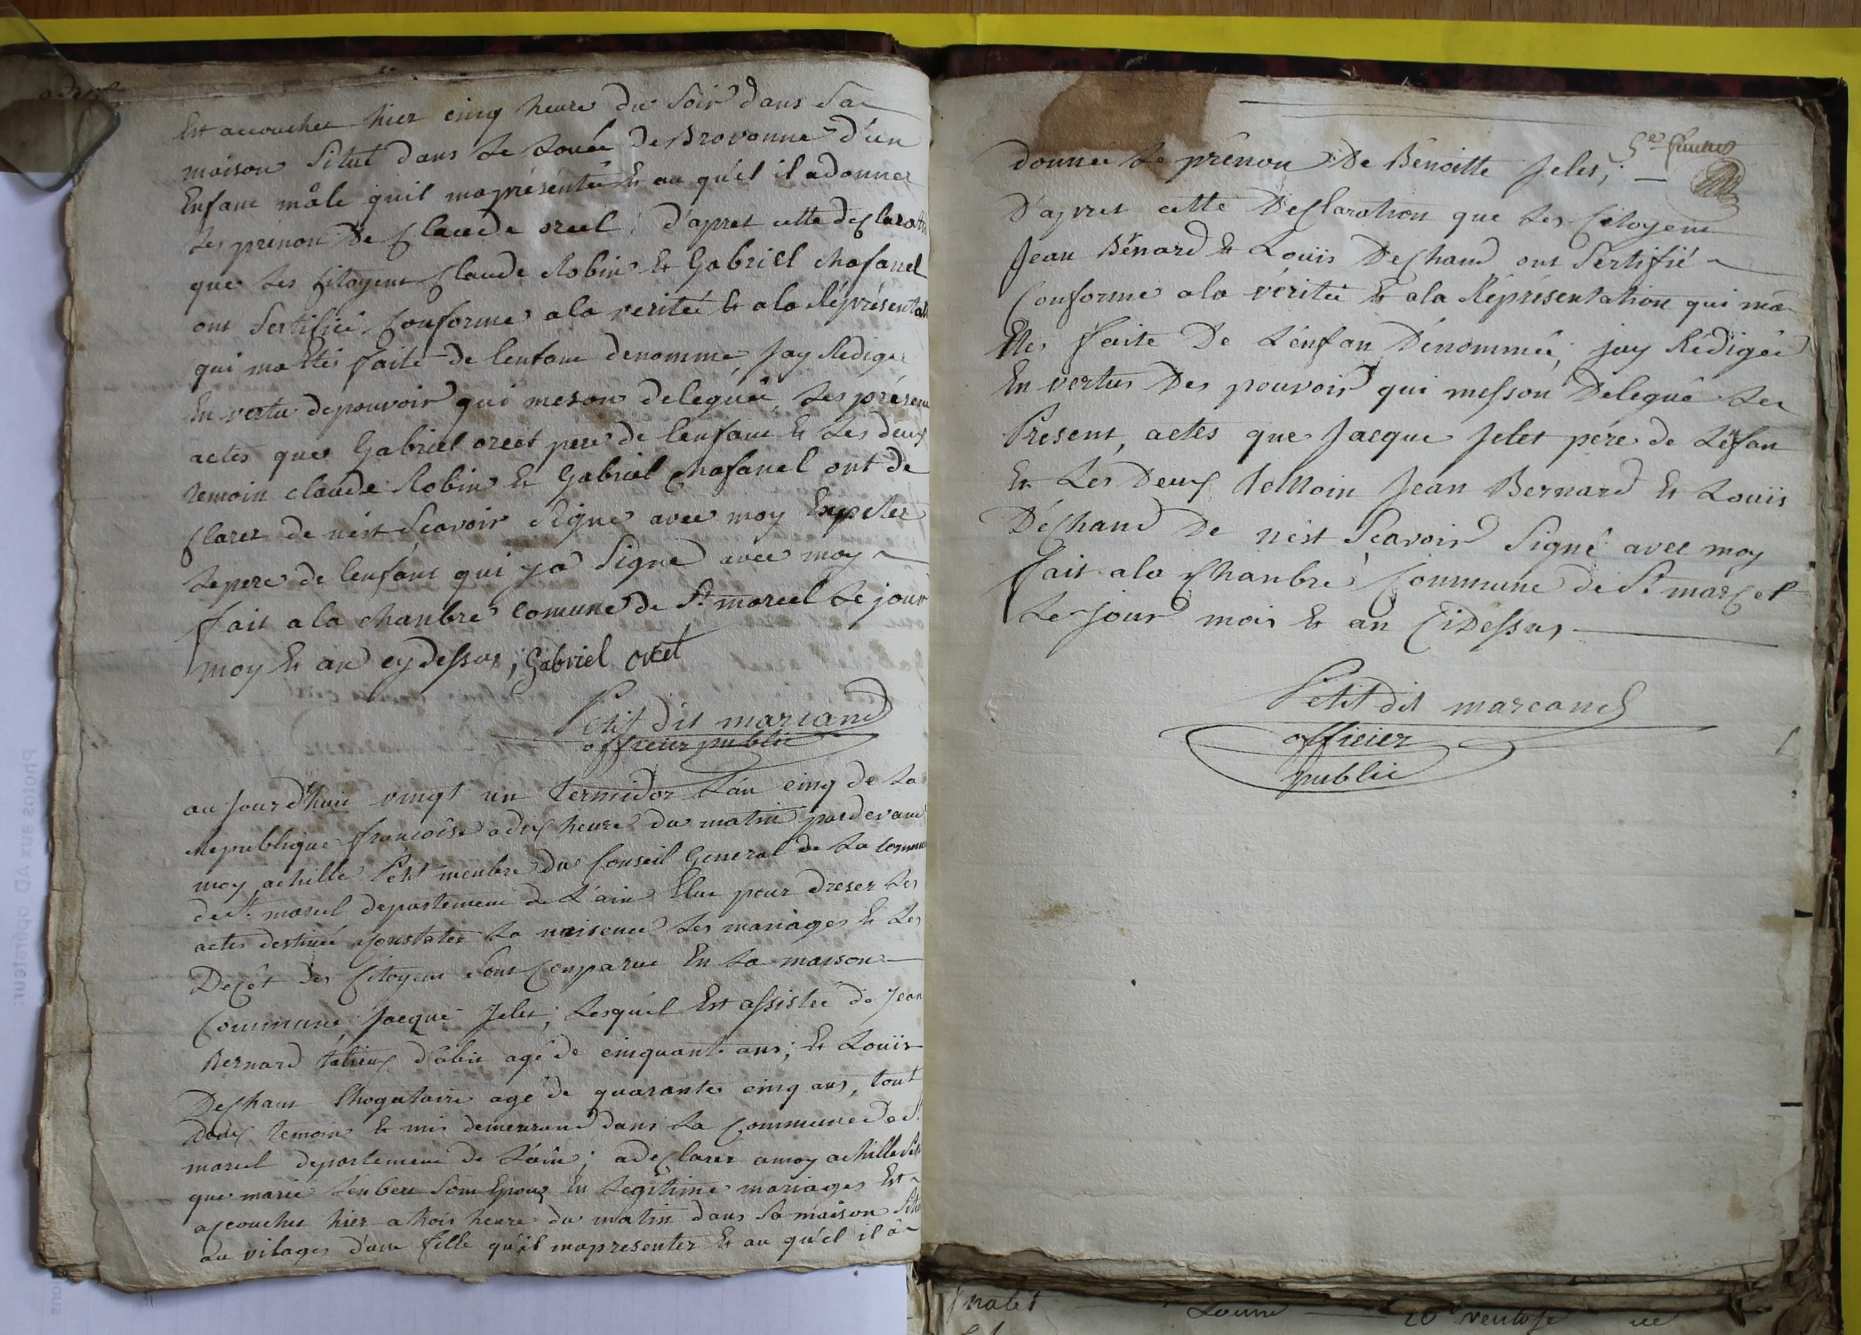 Est accouchee hier cinq heure du Soir dans Sa
maison Situé dans Le Louée De Brovonne d'un
Enfant mâle quil mapresentée Et au quel il adonner
Les prenom De Claude orcel ; d'apret cette declaration
que Les Citoyens Claude Robin Et Gabriel Chafanel
ont Sertifiée Conforme ala veritée Et ala Réprésentat
qui ma Etéi faite de lenfant denommé Jay Rédiger
En vertu depouvoir qui meson deleguée Les présent
actes que Gabriel orcet pere de lenfant Et Les deux
temoin claude Robin Et Gabriel Chafanel ont de
Clarer de nêst Scavoir Signe avec moy Expeter
Le pere de lenfant qui ya Signé avec moy
fait ala chanbre comune de St marcel Le jour
moy Et an cy dessus ; Gabriel orcel
Petit dit marcand
officier public
au jourd'huit vingt un termidor L'an cinq de La
republique francoise adix heure du matin pardevant
moy achille Petit menbre du Conseil General de La commune
de St marcel departement de L'ain Elue pour dreser Les
actes destinée aconstater La naisence Les mariages Et Les
Decêt des Citoyens Sont Conparue En La maison
Commune Jacque Jelet ; Lesquél Est assistée de Jean
Bernard d'âbit agé de cinquante ans ; Et Louis
Dechant agé de quarante cinq ans, tout
deux temoin Et mis demeurand dans La Commune De St
marcel departement de Làin ; adeclarer amoy achille Petit
que marie Lenbert Son Epouz En Legitime mariages Est
accouchee hier atrois heure du matin dans Sa maison Situé
au vilages d'une fille qu'il mapresenter Et au qu'él il â
donner Le prénon De Bênoitte Jelet ;
D'apret cette Déclaration que Les Citoyens
Jean Bénard Et Louis Dechand ont Sertifié
Conforme ala véritée Et ala Réprésentation qui mà
Etes faite De Lénfan Dénommée ; jay Rédigée
En vertus Des pouvoir qui messon Delegué Les
Present, actes que Jacque Jelet pére de Léfan
Et Lés Deux temoin Jean Bernard Et Louis
Déchand De nést Scavoir Signé avec moy
fait ala Chanbre Commune de St marcel
Le Jour mois Et an CiDessus
Petit dit marcand
officier
public